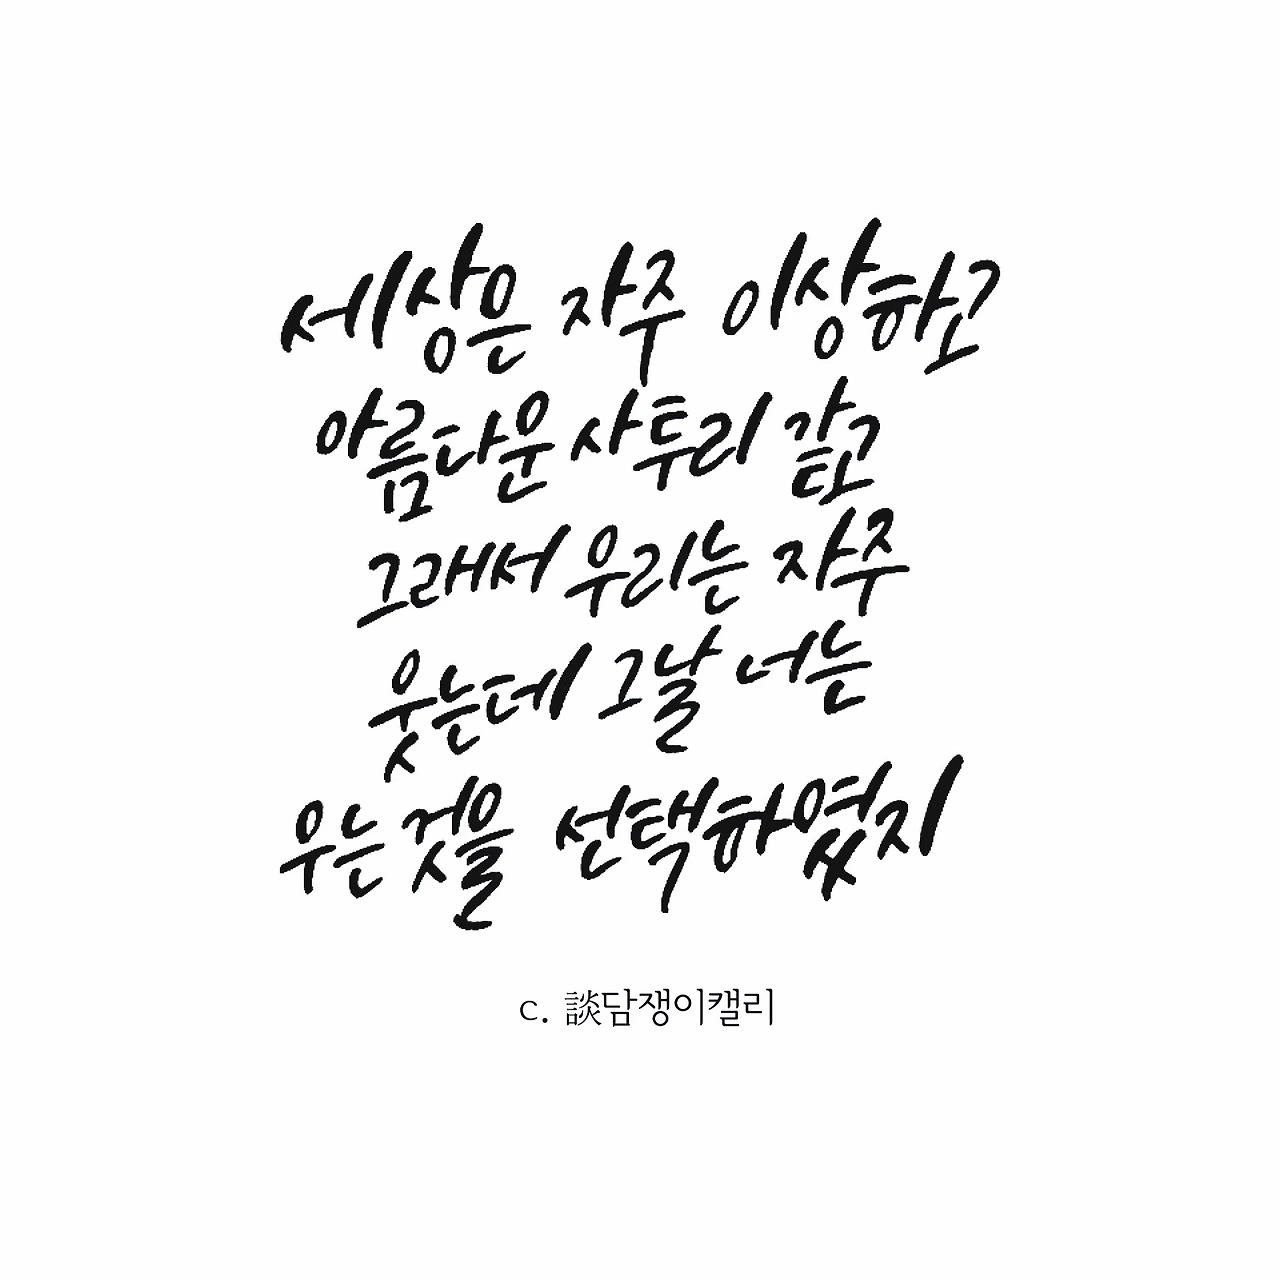 세상은 자주 이상하고
아름다운 사투리 같고
그래서 우리는 자주
웃는데 그날 너는
우는 것을 선택하였지
c. 談담쟁이캘리